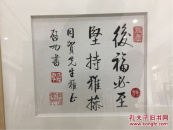 後福必至
堅持雅操
同賀先生雅正
啟功書